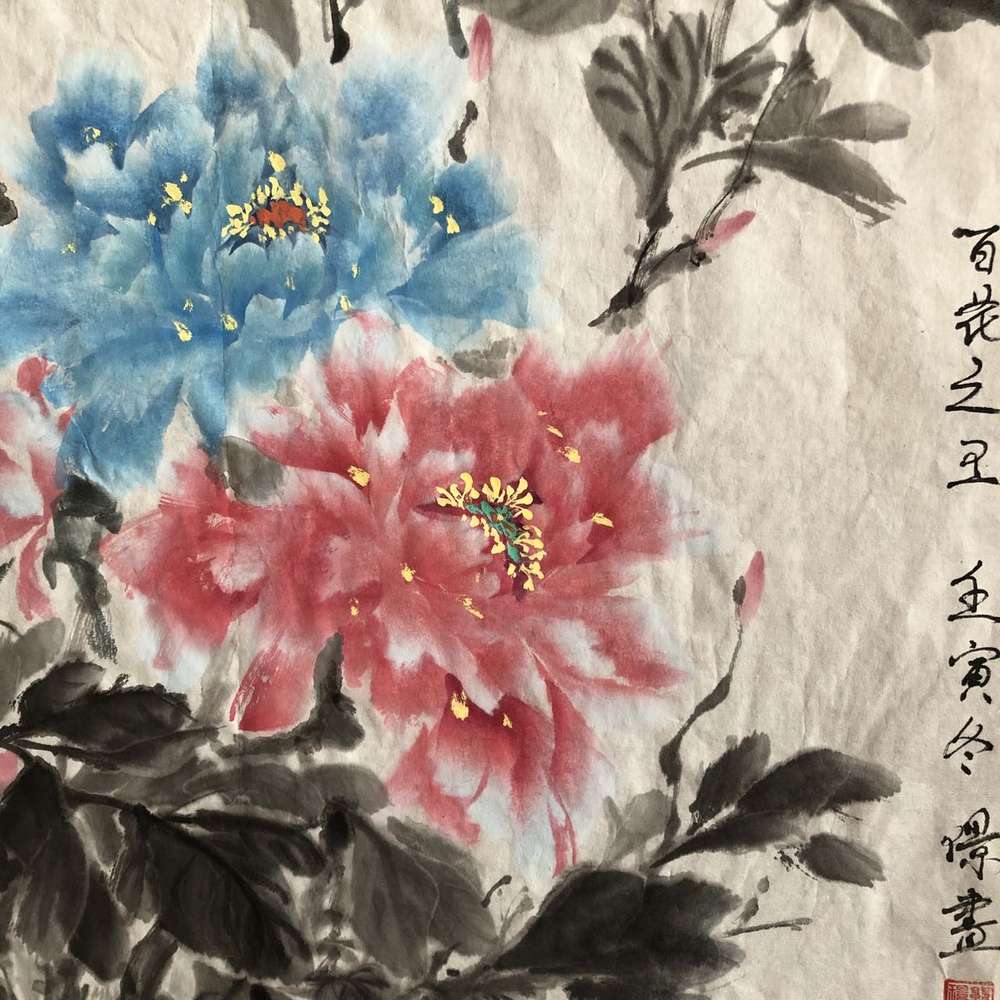 百花之王 壬寅冬 畫